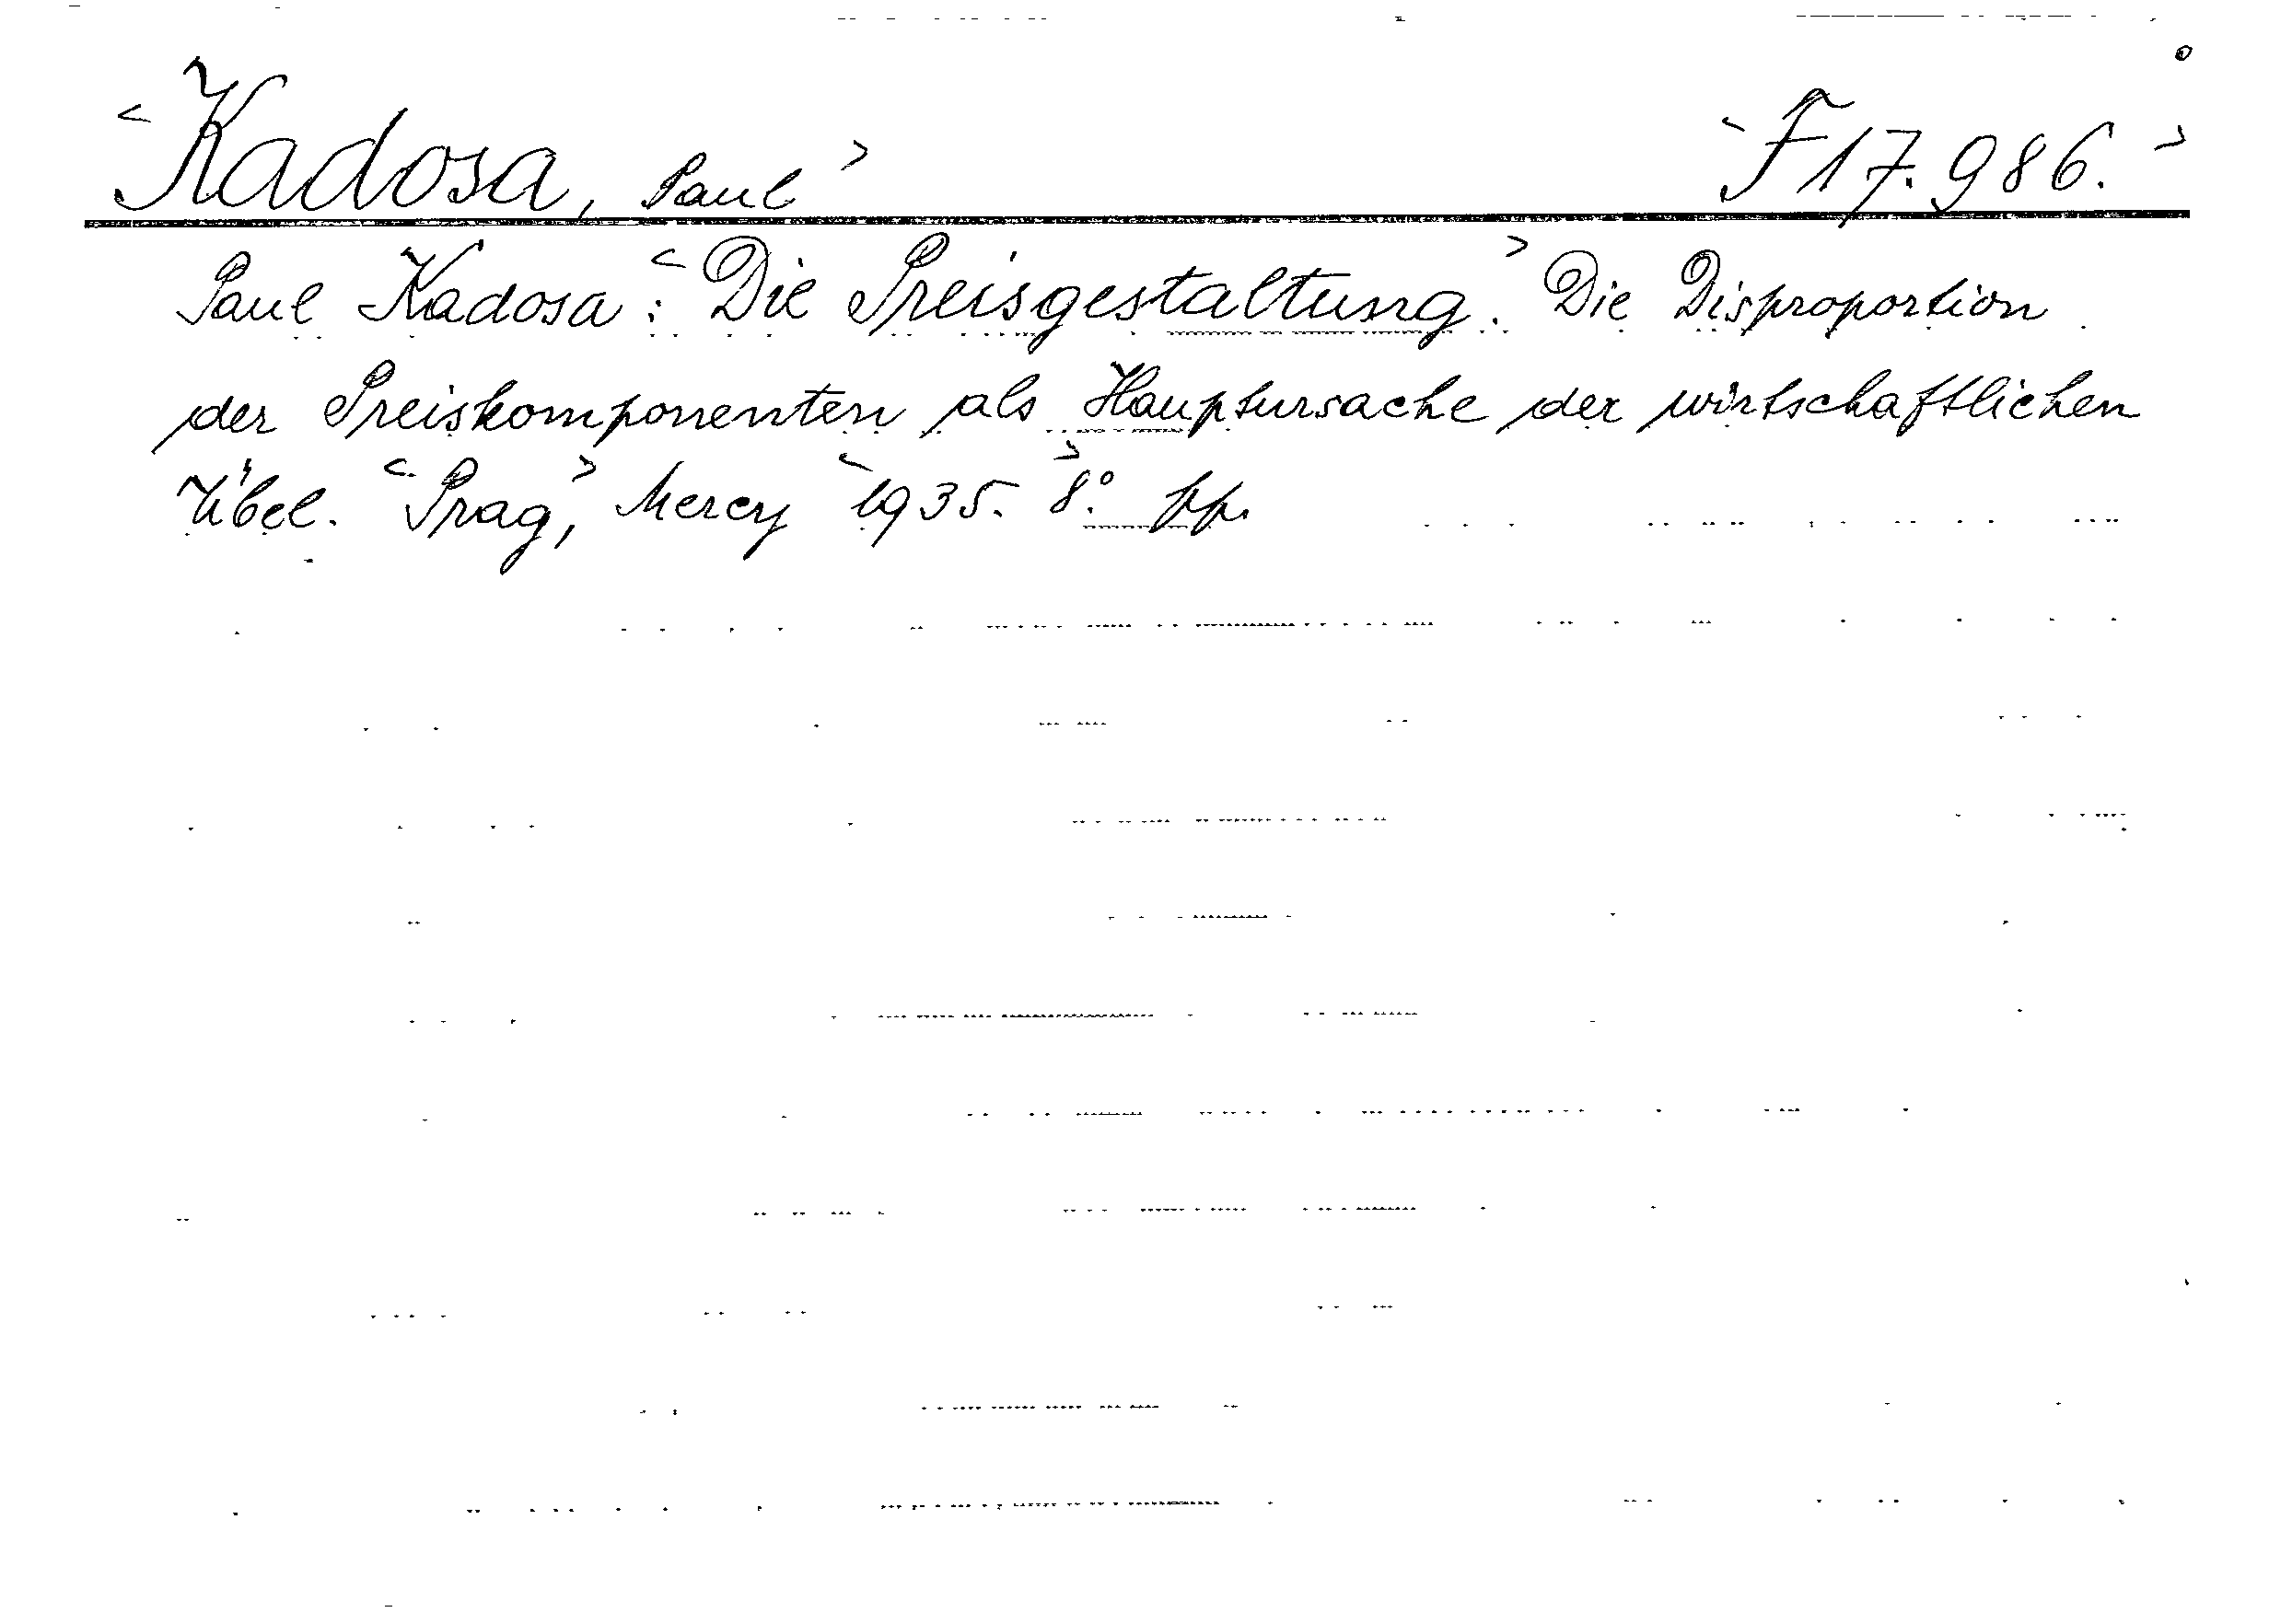 <Kadosa, Paul> <F 17.986.>
Paul Kadosa: <Die Preisgestaltung.> Die Disproportion
der Preiskomponenten als Hauptursache der wirtschaftlichen
Übel. <Prag,> Mercy <1935.> 8° pp.